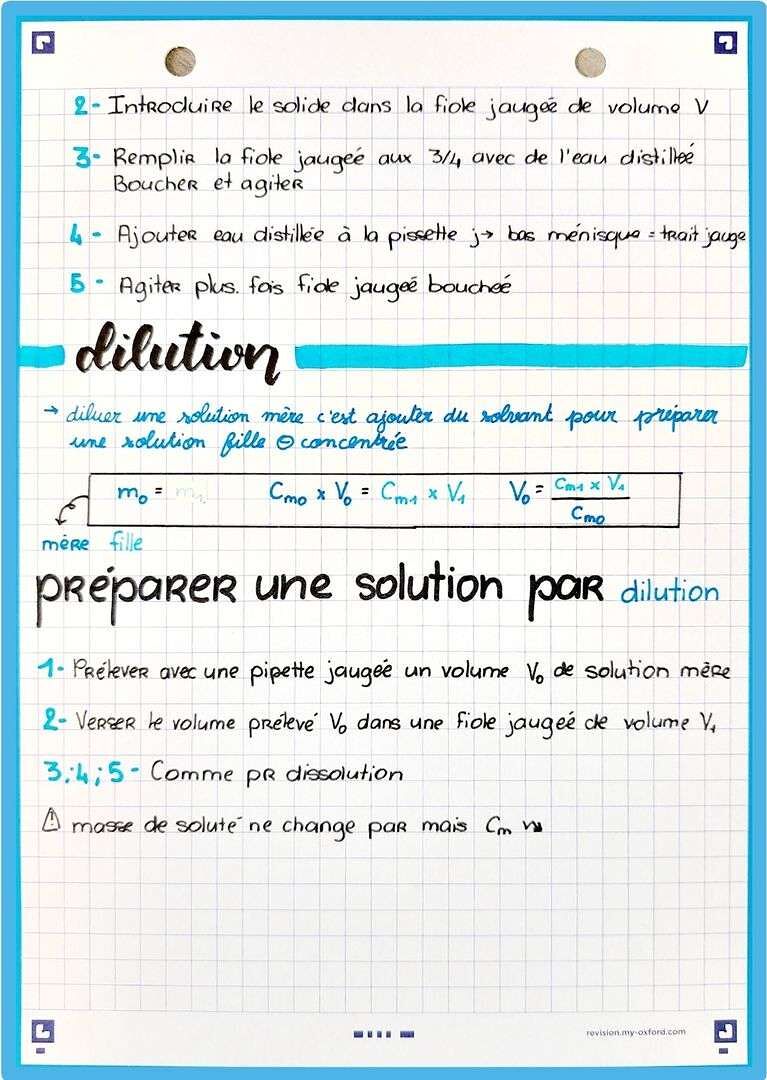 2- Introduire le solide dans la fiole jaugeé de volume V
3- Remplir la fiole jaugeé aux 3/4 avec de l'eau distilleé
Boucher et agiter
4- Ajouter eau distillée à la pissette j→ bas ménisque = trait jauge
5- Agiter plus. fois fiole jaugeé boucheé
dilution
→ diluer une solution mère c'est ajouter du solvant pour préparer
une solution fille ⊖ concentrée
m₀ = m₁ Cm₀ x V₀ = Cm₁ x V₁ V₀ = Cm₁ x V₁ / Cm₀
mère fille
préparer une solution par dilution
1- Prélever avec une pipette jaugeé un volume V₀ de solution mère
2- Verser le volume prélevé V₀ dans une fiole jaugeé de volume V₁
3;4;5- Comme pr dissolution
⚠ masse de soluté ne change par mais Cm ↘
revision.my-oxford.com